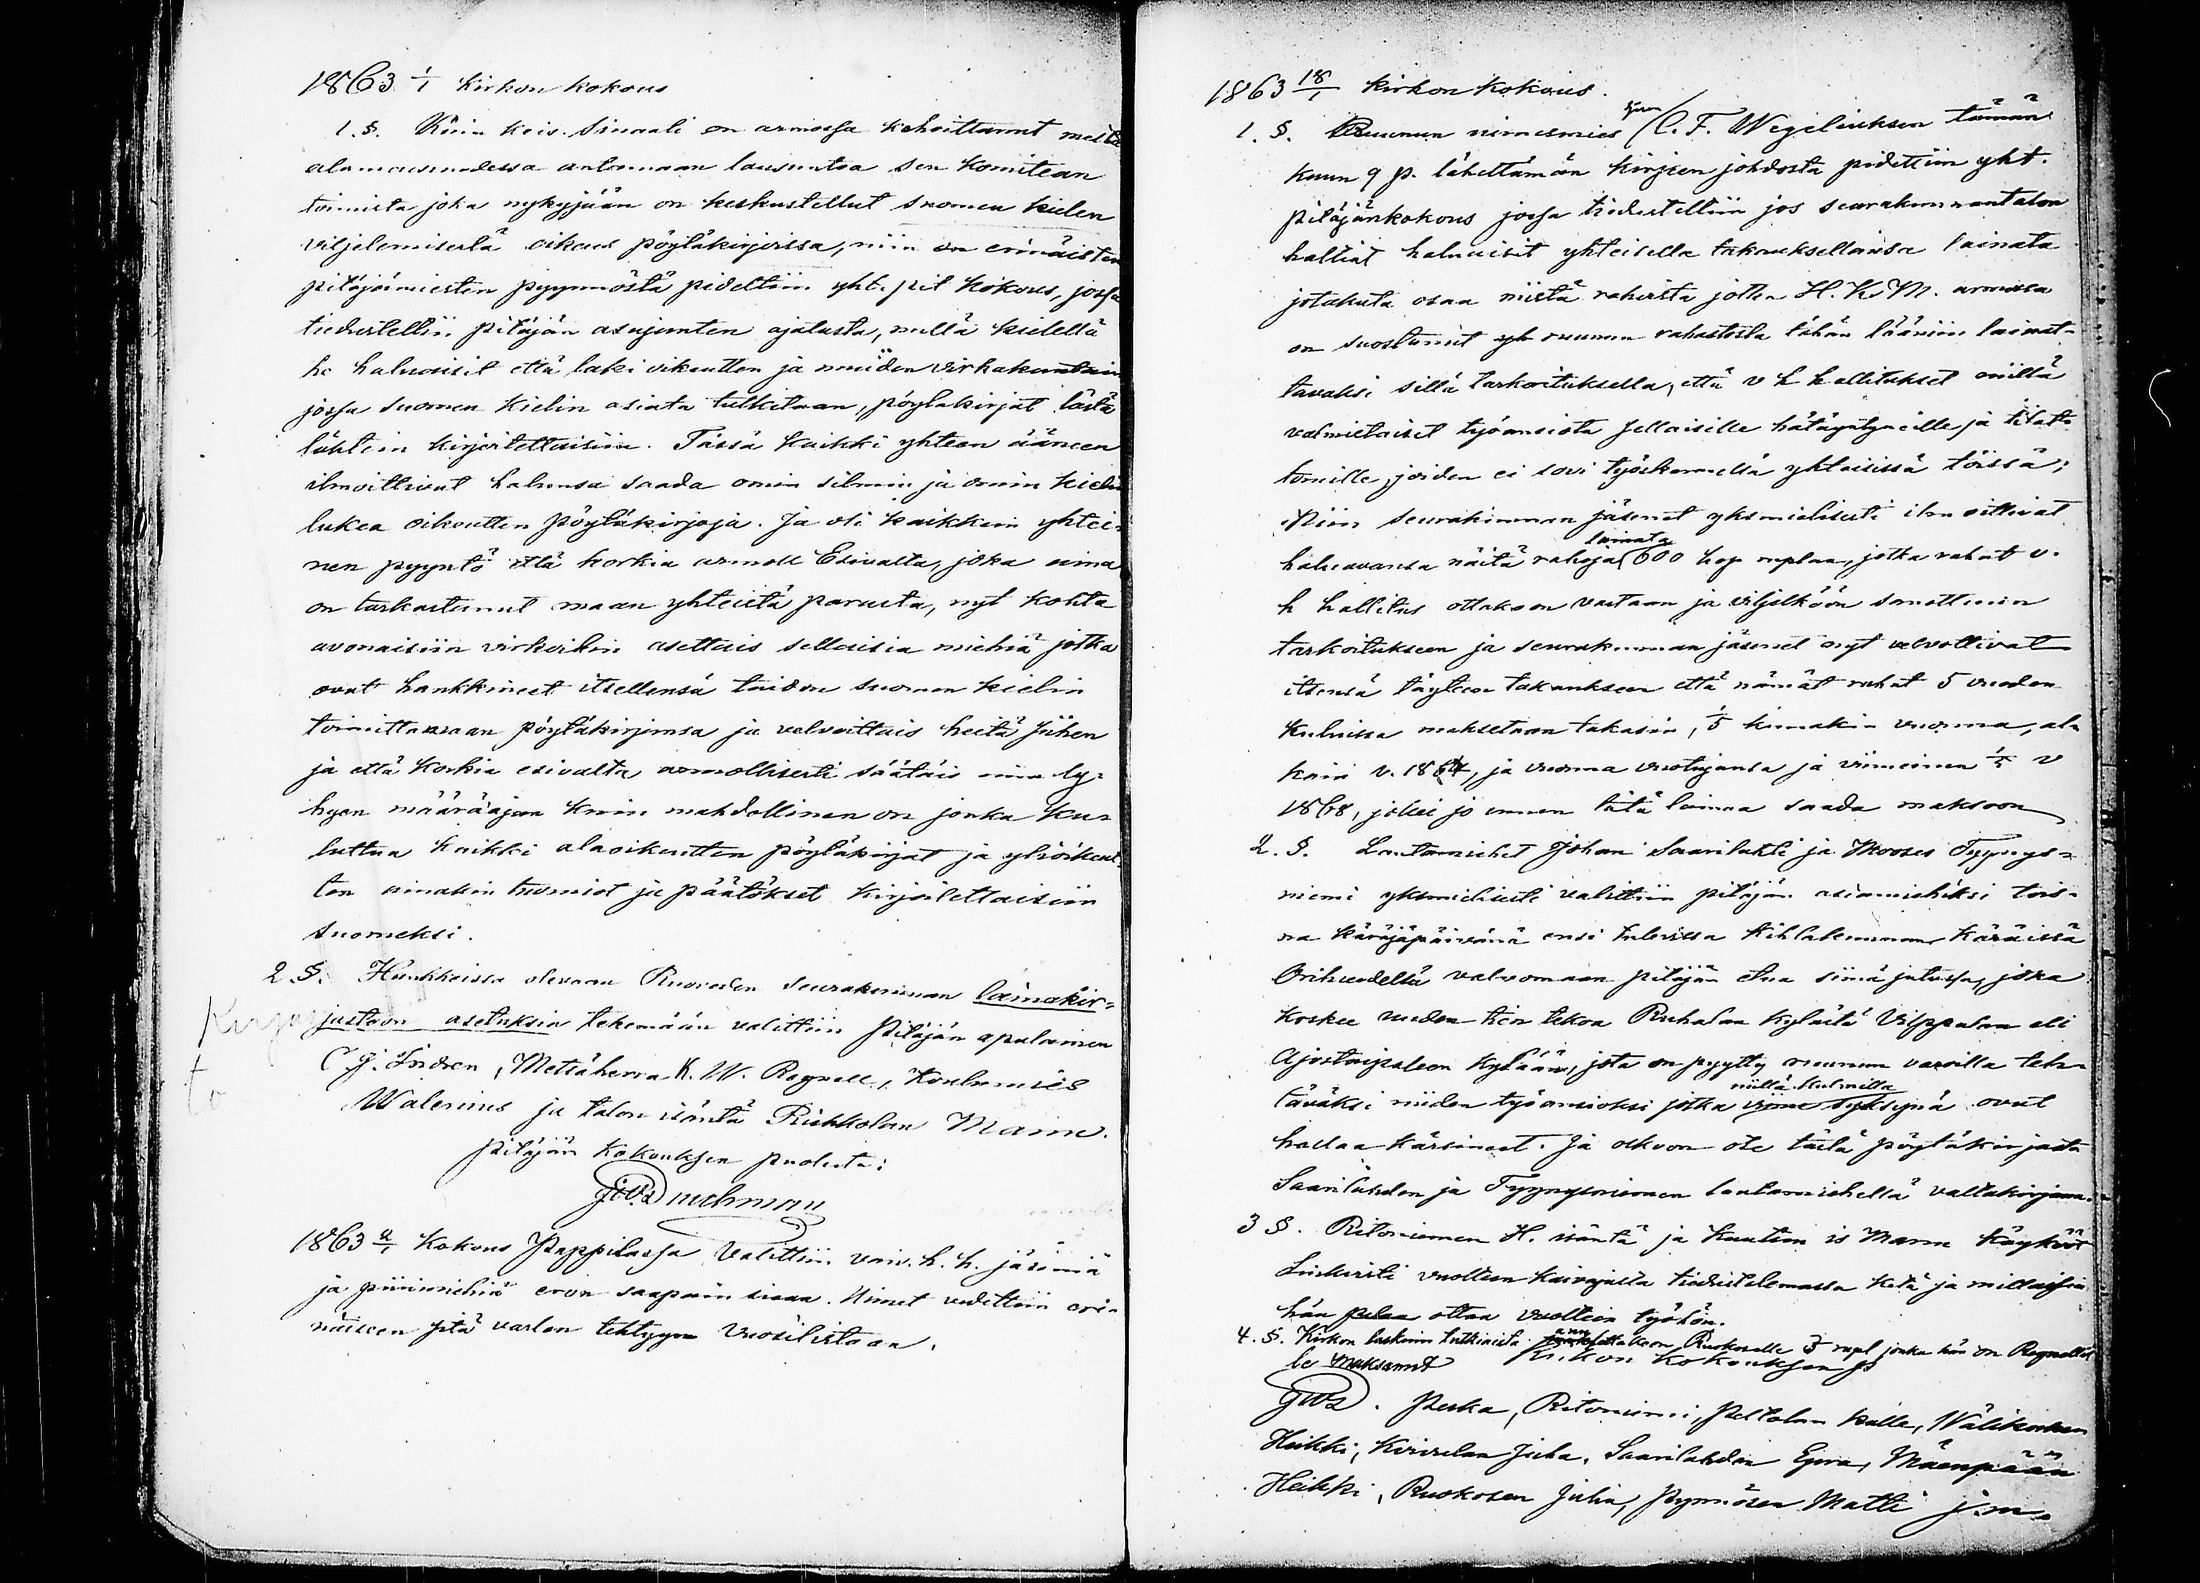 1863 1/1 Kirkon kokous
1. §. Kuin keis. Sinaali on armossa kehoittannut meitä
alamaisuudessa antamaan lausuntoa sen komitean
toimista joka nykyjään on keskustellut suomen kielen
viljelemisestä oikeus pöytäkirjoissa, niin on erinäisten
pitäjämiesten pyynnöstä pidettiin yht. pit kokous, jossa
tiedusteltiin pitäjän asujunten ajatusta, millä kielellä
he haluaisit että laki oikeutten ja muiden virkakuntain
jossa suomen kielin asiata tulkitaan, pöytäkirjat tästä
lähtein kirjoitettaisiin. Tässä kaikki yhteen ääneen
ilmoittivat halunsa saada omin silmin ja omin kielin
lukea oikeutten pöytäkirjoja. Ja oli kaikkein yhtei-
nen pyyntö että korkia armoll Esivalta, joka aina
on tarkastanut maan yhteistä parasta, nyt kohta
avonaisiin virkoihin asettais sellaisia miehiä jotka
ovat hankkineet itsellensä taidon suomen kielin
toimittamaan pöytäkirjansa ja velvoittais heitä siihen
ja että korkia esivalta armollisesti säätäis niin ly-
hyen määräajan kuin mahdollinen on jonka ku-
luttua kaikki alaoikeutten pöytäkirjat ja ylioikeut-
ten ainakin tuomiot ja päätökset kirjoitettaisiin
suomeksi.
2 §. Hankkeissa olevaan Ruoveden seurakunnan lainakir-
jaston asetuksia tekemään valittiin pitäjän apulainen
C G. Indren, Mettäherra K. W. Regnell, koulumies
Walenius ja talon isäntä Riihkolan Mannu.
Kirjas
to
pitäjän kokouksen puolesta:
1863 4/1 kokous Pappilassa Valittiin vaiv. h. h. jäseniä
ja piirimiehiä eron saapain siaan. Nimet vedettiin eri-
näiseen sitä varten tehtyyn vuosilistaan.
1863 18/1 kirkon kokous.
1. §. Ruunun nimismies herra C. F. Wegeliuksen tämän
kuun 9 p. lähettämän kirjeen johdosta pidettiin yht.
pitäjänkokous jossa tiedusteltiin jos seurakunnan talon
haltiat haluaisit yhteisellä takauksellansa lainata
jotakuta osaa niistä rahoista jotka H. K. M. armossa
on suostunut ruunun rahastosta tähän lääniin lainat-
tavaksi sillä tarkoituksella, että v h hallitukset niillä
valmistaisit työansiota sellaisille hätäyntyneille ja tilat-
tomille, joiden ei sovi työskennellä yhteisissä töissä;
Niin seurakunnan jäsenet yksmielisesti ilmoittivat
haluavansa näitä rahoja lainata 600 hop ruplaa, jotka rahat v.
h hallitus ottakoon vastaan ja viljelköön sanottuun
tarkoitukseen ja seurakunnan jäsenet nyt velvottivat
itsensä täyteen takaukseen että nämät rahat 5 vuoden
kuluissa maksetaan takasin, 1/5 kunakin vuonna, al-
kain v. 1864, ja vuonna vuotujansa ja viimeinen 1/5 v
1868, jollei jo ennen tätä lainaa saada maksoon
2. §. Lautamiehet Johan Saarilahti ja Mooses Tyynys-
niemi yksmielisesti valittiin pitäjän asiamiehiksi tois-
na käräjäpäivänä ensi tulevissa kihlakunnan käräissä
Orihvedellä valvomaan pitäjän etua siinä jutussa, joka
koskee uuden tien tekoa Ruhalan kylästä Vilppulan eli
Ajostaipaleen kylään, jota on pyytty ruunun varoilla teh-
täväksi niiden työansioksi jotka niillä kulmilla viime syksynä ovat
hallaa kärsineet. Ja olkoon ote tästä pöytäkirjasta
Saarilahden ja Tyynysniemen lautamiehellä valtakirjana.
3 §. Ritoniemen H. isäntä ja Kauttun is Mannu käykööt
Linkeristi vuolteen kaivajasta tiedustelemassa ketä ja millaisia
hän ottaa vuolteen työhön.
4. §. Kirkon laskuin tutkinista annettakoon Ruokoselle 3 rupl jonka hän on Regnellil
le maksannut Kirkon Kokouksen p
Peska, Ritoniemi, Peltolan Kalle, Wälikosken
Heikki, Kirvelan Juha, Saarilahden Eera, Mäenpään
Heikki, Ruokosen Juha, Pynnösen Matti j.m.